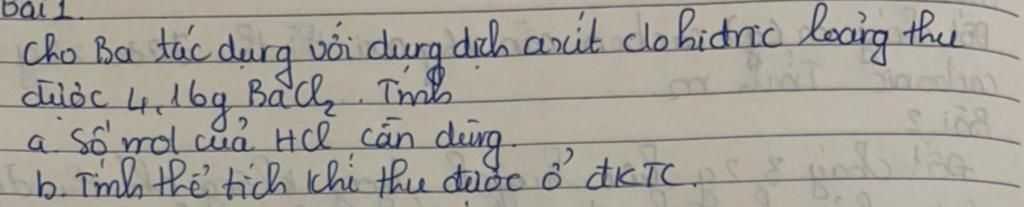 Bài 1.
Cho Ba tác dụng với dung dịch axit clohidric loãng thu
được 4,16g BaCl₂. Tính
a. Số mol của HCl cần dùng.
b. Tính thể tích khí thu được ở đKTC.